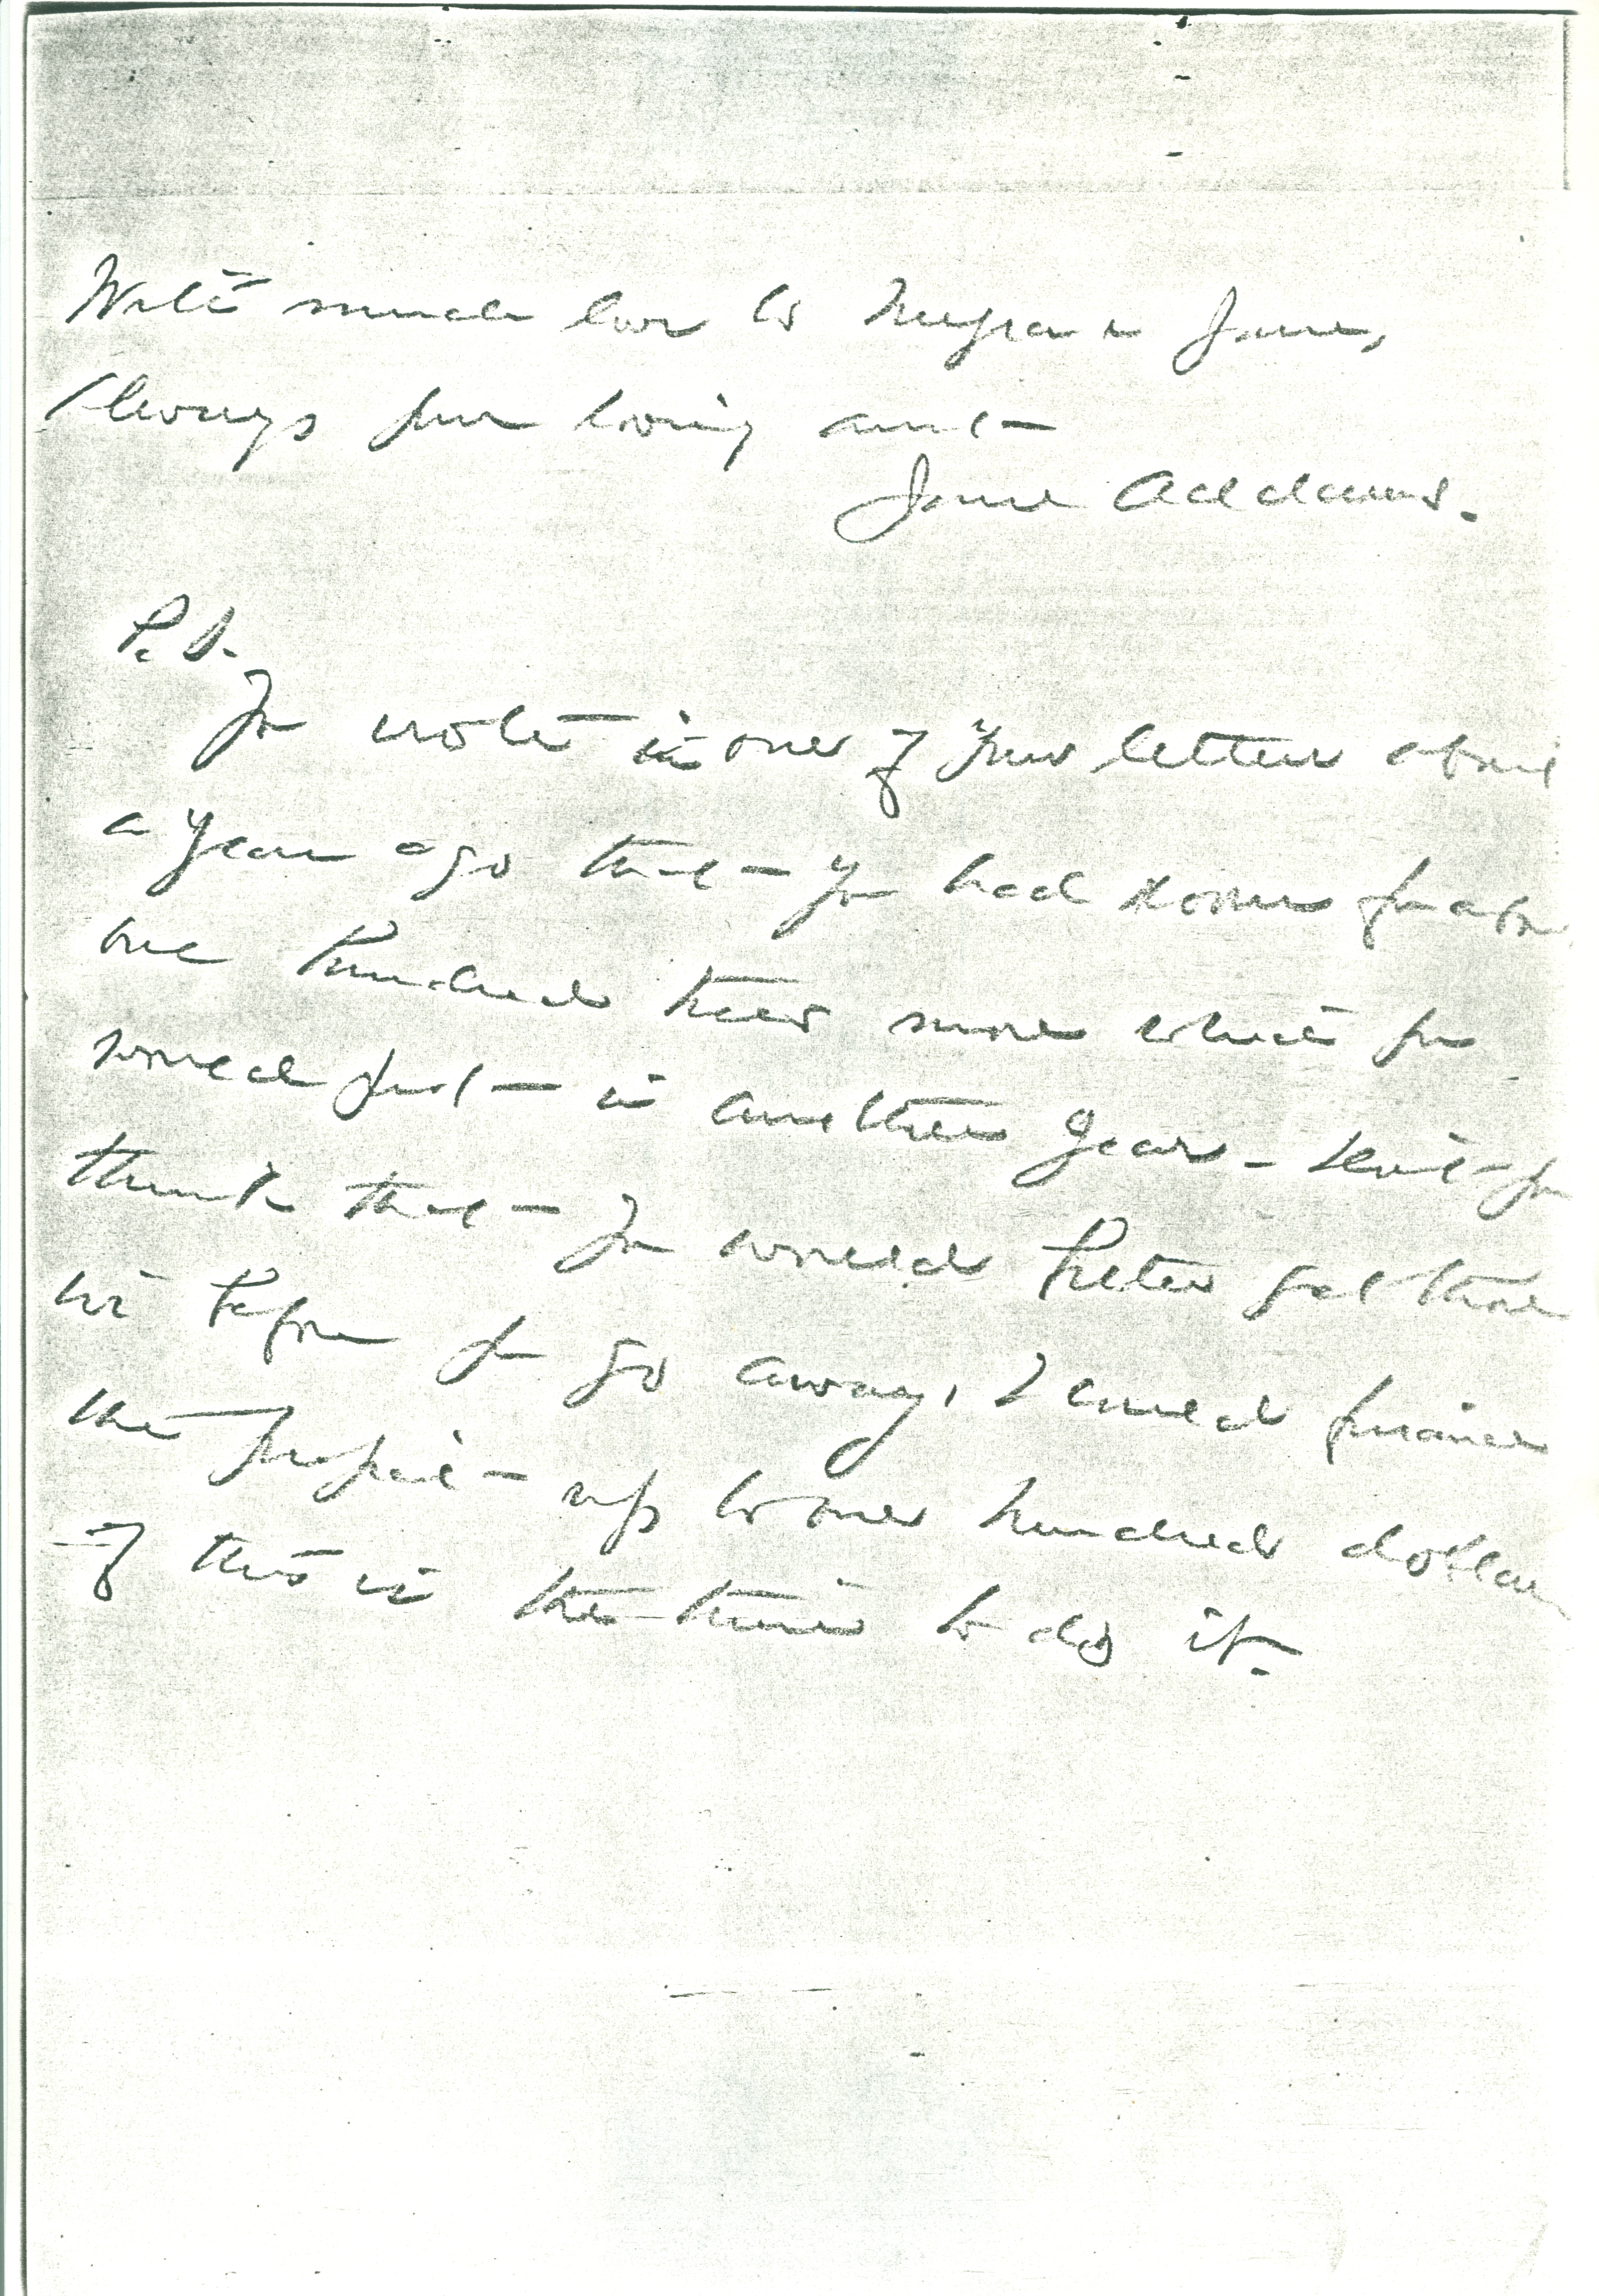 With much love to Myra & Jane,
Always your loving aunt
Jane Addams.
P.S.
You wrote in one of your letters about
a year ago that you had room for about
one hundred trees more which you
would put in another year - don't you
think that you would better get those
in before you go away, I could finance
the project up to one hundred dollars
if this is the time to do it.